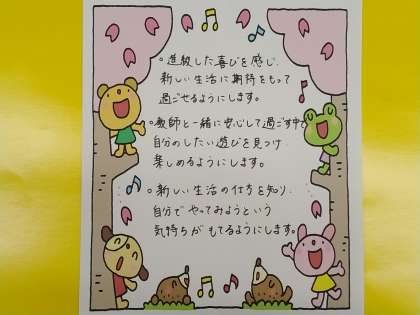 。進級した喜びを感じ
新しい生活に期待をもって
過ごせるようにします。
。教師と一緒に安心して過ごす中で
自分のしたい遊びを見つけ
楽しめるようにします。
。新しい生活の仕方を知り
自分で やってみようという
気持ちが もてるようにします。